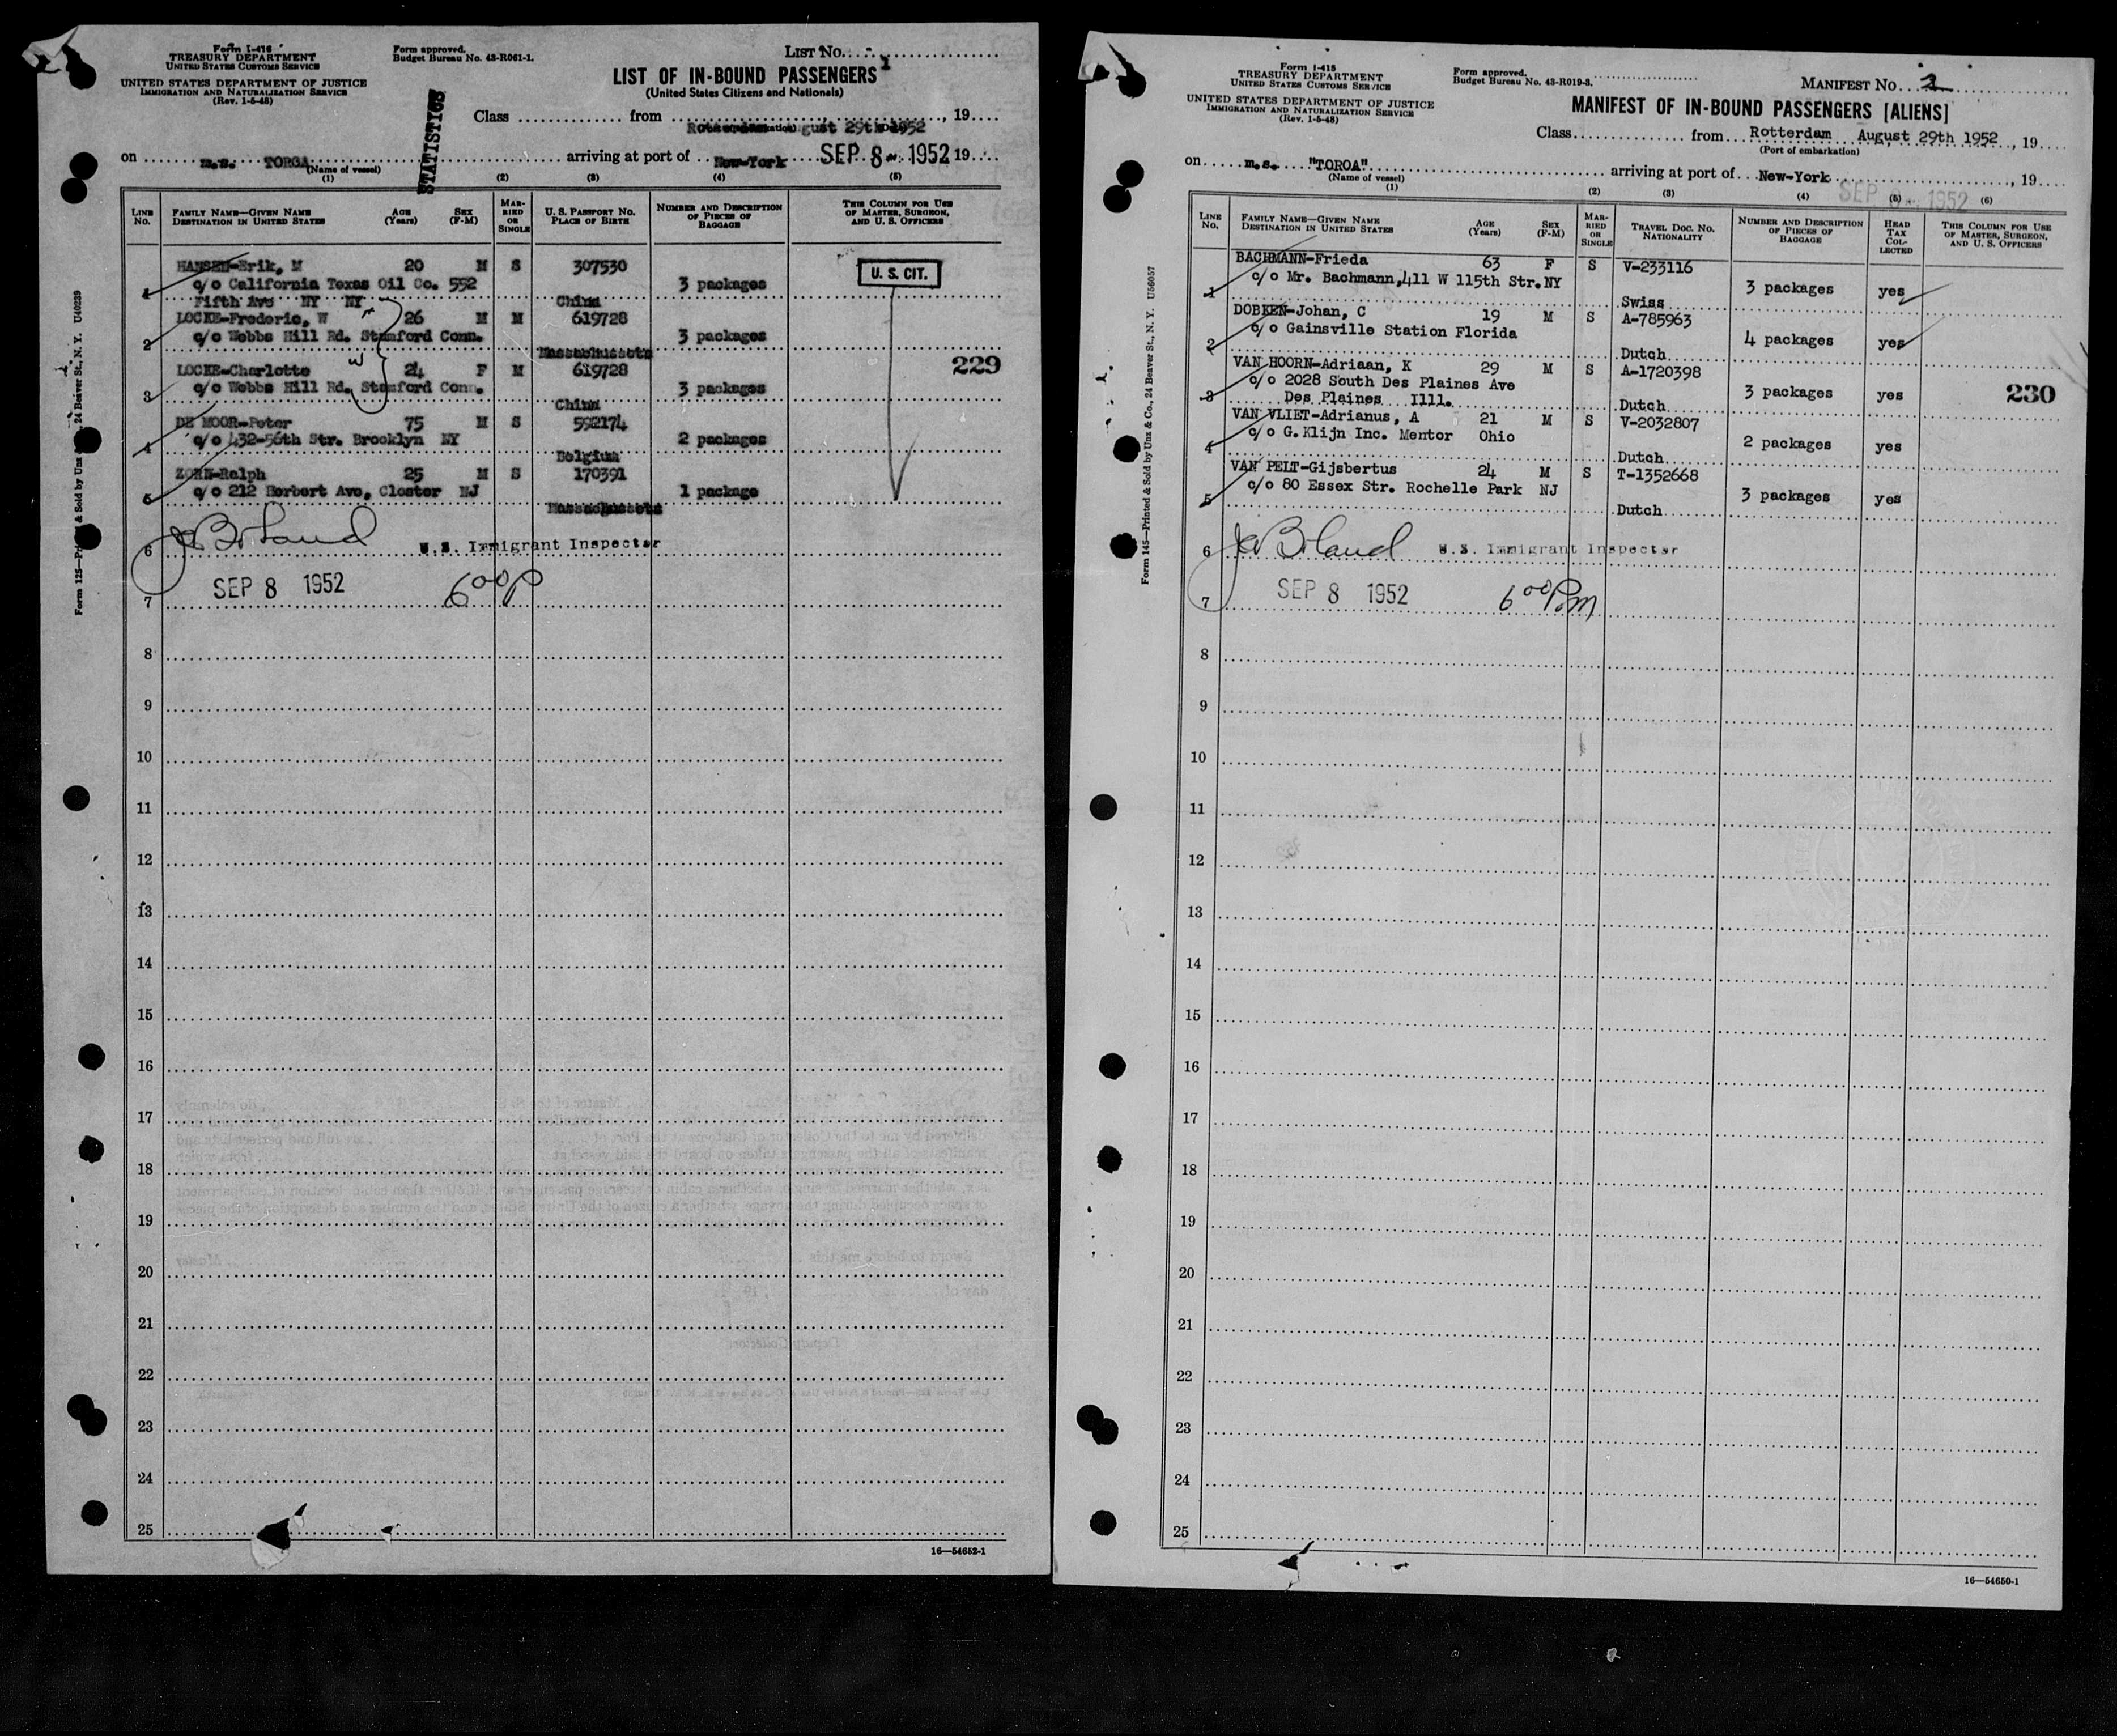 Form I-416
TREASURY DEPARTMENT
UNITED STATES CUSTOMS SERVICE
UNITED STATES DEPARTMENT OF JUSTICE
IMMIGRATION AND NATURALIZATION SERVICE
(Rev. 1-5-48)
Form approved.
Budget Bureau No. 43-R061-1.
LIST No. 1
LIST OF IN-BOUND PASSENGERS
(United States Citizens and Nationals)
STATISTICS
Class from Rotterdam August 29th 1952, 19
on m.s. TOROA arriving at port of New-York SEP 8 1952 19
(Name of vessel)
(1) (2) (3) (4) (5)
LINE No. FAMILY NAME—GIVEN NAME DESTINATION IN UNITED STATES AGE (Years) SEX (F-M) MARRIED OR SINGLE U. S. PASSPORT NO. PLACE OF BIRTH NUMBER AND DESCRIPTION OF PIECES OF BAGGAGE THIS COLUMN FOR USE OF MASTER, SURGEON, AND U. S. OFFICERS
HANSEN-Erik, M 20 M S 307530
c/o California Texas Oil Co. 552 3 packages U. S. CIT.
1 Fifth Ave NY NY China
LOCKE-Frederic, W 26 M M 619728
c/o Webbs Hill Rd. Stamford Conn. 3 packages
2 Massachussets
LOCKE-Charlotte 24 F M 619728 229
c/o Webbs Hill Rd. Stamford Conn. 3 packages
3 China
DE MOOR-Peter 75 M S 592174
c/o 432-56th Str. Brooklyn NY 2 packages
4 Belgium
ZORN-Ralph 25 M S 170391
c/o 212 Herbert Ave, Closter NJ 1 package
5 Massachussets
6 U.S. Immigrant Inspector
7 SEP 8 1952 6 00 P
8
9
10
11
12
13
14
15
16
17
18
19
20
21
22
23
24
25
16—54652-1
Form 125—Printed & Sold by Unz & Co., 24 Beaver St., N. Y. U40239
Form I-415
TREASURY DEPARTMENT
UNITED STATES CUSTOMS SERVICE
UNITED STATES DEPARTMENT OF JUSTICE
IMMIGRATION AND NATURALIZATION SERVICE
(Rev. 1-5-48)
Form approved.
Budget Bureau No. 43-R019-3.
MANIFEST No. 2
MANIFEST OF IN-BOUND PASSENGERS [ALIENS]
Class from Rotterdam August 29th 1952, 19
(Port of embarkation)
on m.s. "TOROA" arriving at port of New-York, 19
(Name of vessel) SEP 8 1952
(1) (2) (3) (4) (5) (6)
LINE No. FAMILY NAME—GIVEN NAME DESTINATION IN UNITED STATES AGE (Years) SEX (F-M) MARRIED OR SINGLE TRAVEL DOC. NO. NATIONALITY NUMBER AND DESCRIPTION OF PIECES OF BAGGAGE HEAD TAX COLLECTED THIS COLUMN FOR USE OF MASTER, SURGEON, AND U. S. OFFICERS
BACHMANN-Frieda 63 F S V-233116
c/o Mr. Bachmann, 411 W 115th Str. NY 3 packages yes
1 Swiss
DOBKEN-Johan, C 19 M S A-785963
c/o Gainsville Station Florida 4 packages yes
2 Dutch
VAN HOORN-Adriaan, K 29 M S A-1720398
c/o 2028 South Des Plaines Ave 3 packages yes 230
3 Des Plaines Illl. Dutch
VAN VLIET-Adrianus, A 21 M S V-2032807
c/o G.Klijn Inc. Mentor Ohio 2 packages yes
4 Dutch
VAN PELT-Gijsbertus 24 M S T-1352668
c/o 80 Essex Str. Rochelle Park NJ 3 packages yes
5 Dutch
6 U.S. Immigrant Inspector
7 SEP 8 1952 6 00 Pm
8
9
10
11
12
13
14
15
16
17
18
19
20
21
22
23
24
25
16—54650-1
Form 145—Printed & Sold by Unz & Co., 24 Beaver St., N. Y. U56057